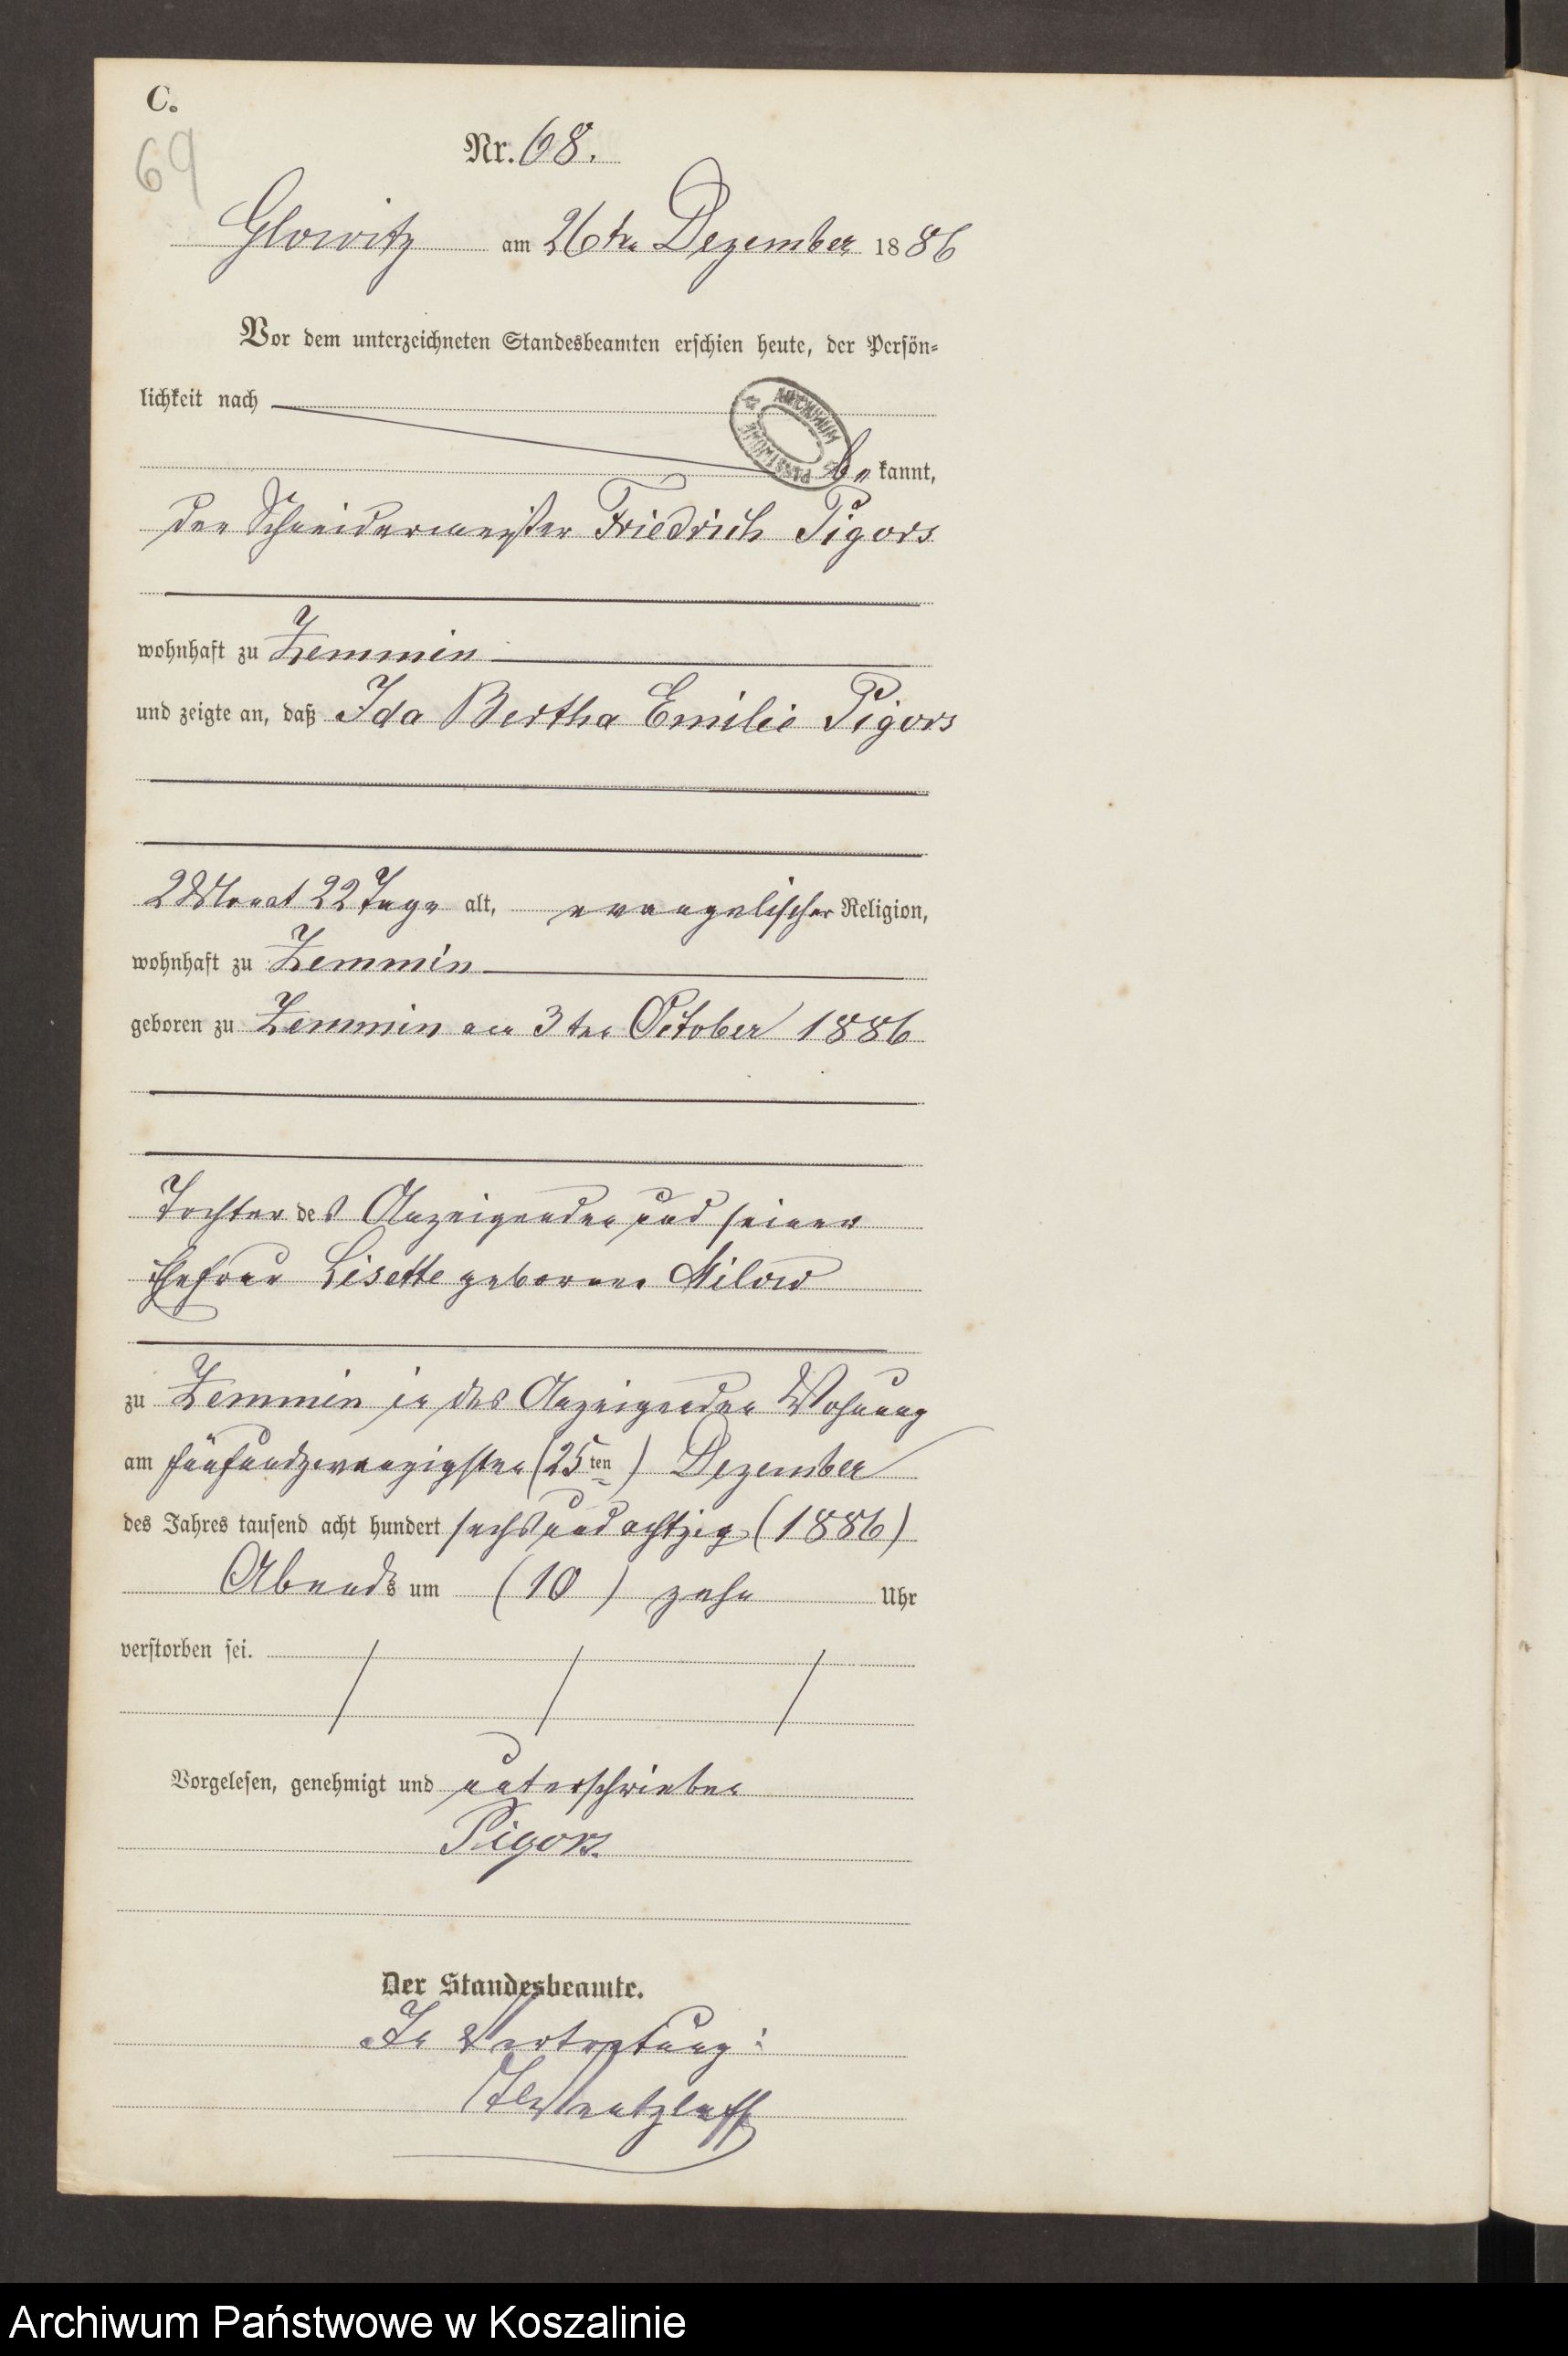 C.
69
Nr. 68.
Glowitz am 26ten Dezember 1886
Vor dem unterzeichneten Standesbeamten erschien heute, der Persön-
lichkeit nach
ARCHIWUM PAŃSTWOWE
be kannt,
der Schneidermeister Friedrich Pigors
wohnhaft zu Zemmin
und zeigte an, daß Ida Bertha Emilie Pigors
2 Monat 22 Tage alt, evangelischer Religion,
wohnhaft zu Zemmin
geboren zu Zemmin am 3ten October 1886
Tochter des Anzeigenden und seiner
Ehefrau Lisette geborene Milow
zu Zemmin in des Anzeigenden Wohnung
am fünfundzwanzigsten (25ten) Dezember
des Jahres tausend acht hundert sechsundachtzig (1886)
Abends um (10) zehn Uhr
verstorben sei.
Vorgelesen, genehmigt und unterschrieben
Pigors.
Der Standesbeamte.
In Vertretung:
Wentzlaff
Archiwum Państwowe w Koszalinie